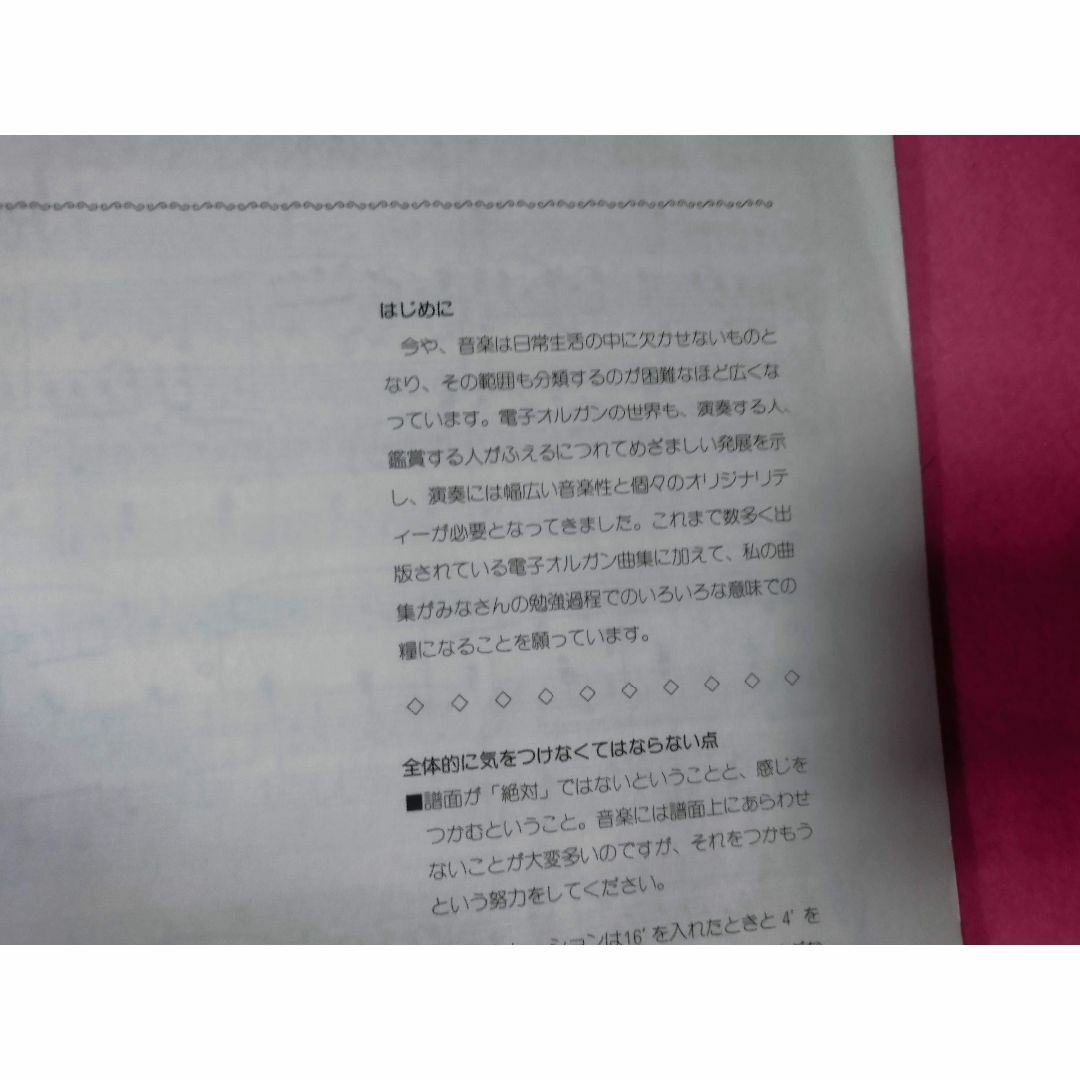 はじめに
今や、音楽は日常生活の中に欠かせないものと
なり、その範囲も分類するのが困難なほど広くな
っています。電子オルガンの世界も、演奏する人、
鑑賞する人がふえるにつれてめざましい発展を示
し、演奏には幅広い音楽性と個々のオリジナリテ
ィーが必要となってきました。これまで数多く出
版されている電子オルガン曲集に加えて、私の曲
集がみなさんの勉強過程でのいろいろな意味での
糧になることを願っています。
◇ ◇ ◇ ◇ ◇ ◇ ◇ ◇ ◇ ◇
全体的に気をつけなくてはならない点
■譜面が「絶対」ではないということと、感じを
つかむということ。音楽には譜面上にあらわせ
ないことが大変多いのですが、それをつかもう
という努力をしてください。
ションは16'を入れたときと4'を